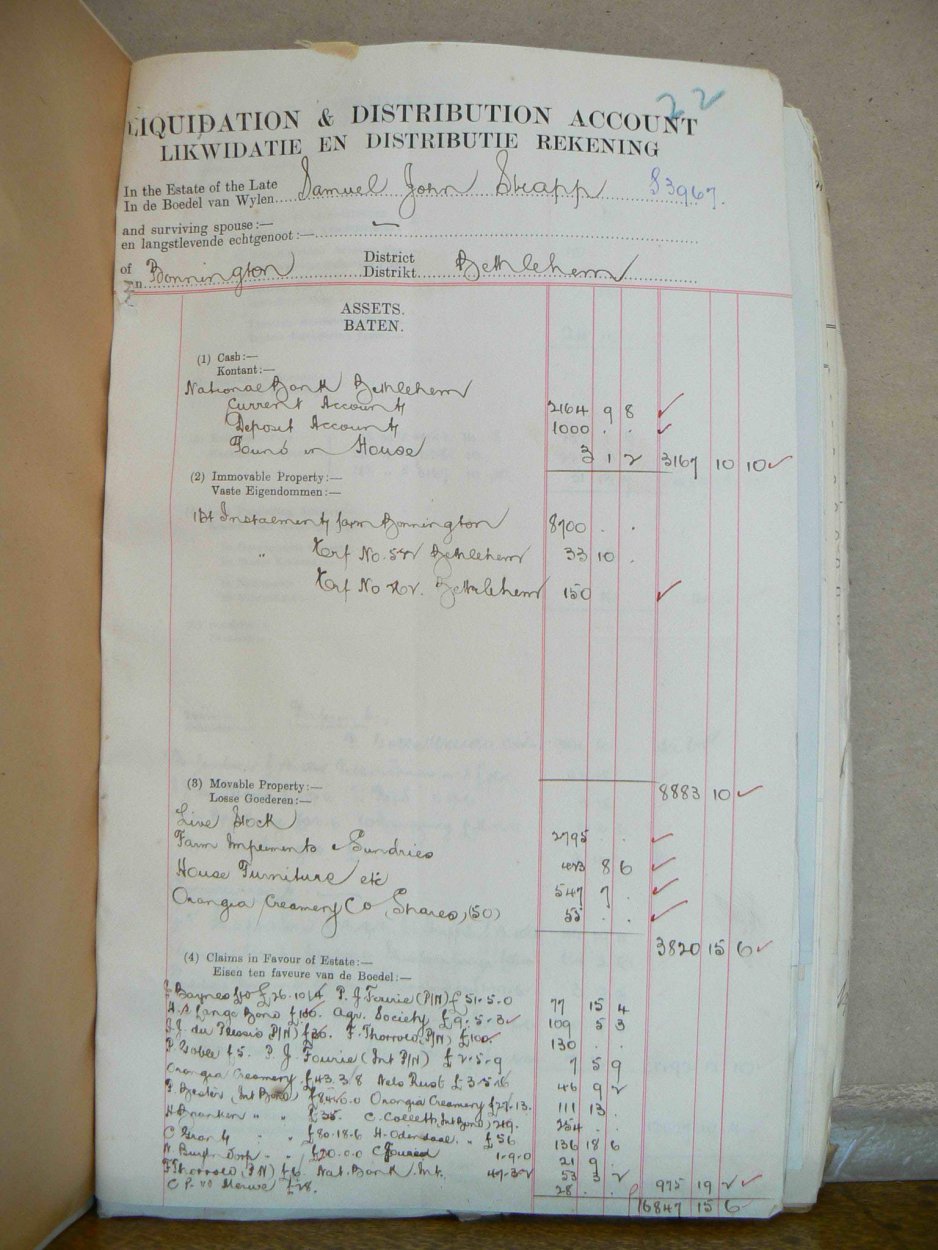 22
LIQUIDATION & DISTRIBUTION ACCOUNT
LIKWIDATIE EN DISTRIBUTIE REKENING
In the Estate of the Late
In de Boedel van Wylen Samuel John Strapp S3967.
and surviving spouse:— —
en langstlevende echtgenoot:—
of Bonnington District Bethlehem
Distrikt
ASSETS.
BATEN.
(1) Cash:—
Kontant:—
National Bank Bethlehem
Current Account 2164 9 8 ✓
Deposit Account 1000 . . ✓
Found in House 3 1 2 3167 10 10 ✓
(2) Immovable Property:—
Vaste Eigendommen:—
1st Instalment farm Bonnington 8700 . .
" Erf No. Bethlehem 33 10 .
Erf No Bethlehem 150 ✓
(3) Movable Property:— 8883 10 ✓
Losse Goederen:—
Live Stock 2795 . . ✓
Farm Impements & Sundries 423 8 6 ✓
House Furniture etc 547 7 . ✓
Orangia Creamery Co Shares, (50) 55 . . ✓
3820 15 6 ✓
(4) Claims in Favour of Estate:—
Eisen ten faveure van de Boedel:—
J Baynes £26.10/4 P. J Fourie (P/N) £51.5.0 77 15 4
Lange Bond £100. Agr. Society £9.5.3 ✓ 109 5 3
(P/N) £30. F. Thorrold (P/N) £100. 130 . .
P. £5. P. J. Fourie (Int P/N) £2.5.9 7 5 9
Orangia Creamery £43.3/8 Nels Rust £3.5/6 46 9 2
Bester (Int Bond) £84.0.0 Orangia Creamery £27.13. 111 13 .
" " £35. C. Collett, Int Bond, 219. 254 . .
C " " £80.18.6 H. Odendaal " £56 136 18 6
£20.0.0 C 1.9.0 21 9 .
F Thorrold (P/N) £6. Nat. Bank Int. 47.3.2 53 3 2
C P. vd Merwe £28. 28 . . 975 19 2 ✓
16847 15 6